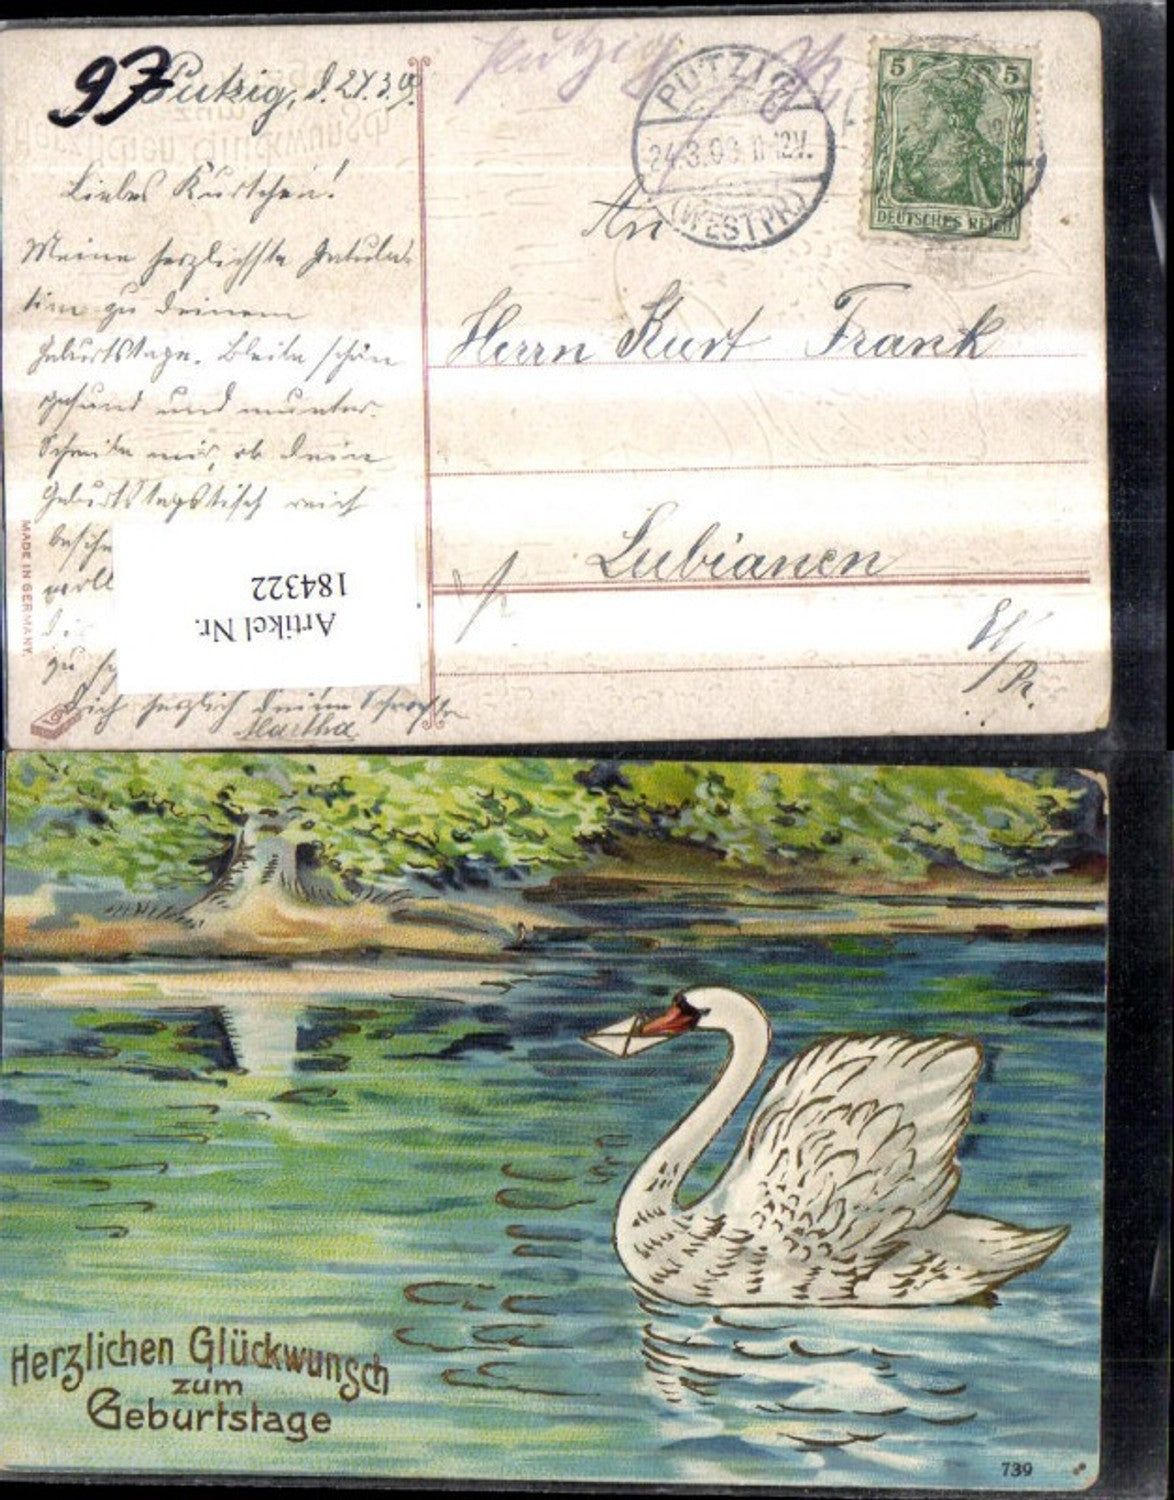 97
Putzig, d. 24.3.09.
Liebes Kurtchen!
Meine herzlichste Gratula-
tion zu deinem
Geburtstage. Bleibe schön
gesund und munter.
Schreibe mir, ob dein
Geburtstagstisch reich
besche
woll
zu
Dich herzlich deine Schwester
Martha
MADE IN GERMANY.
Artikel Nr.
184322
Putzig
PUTZIG
24.3.09. 11-12V.
(WESTPR.)
5 5
DEUTSCHES REICH
An
Herrn Kurt Frank
Lubianen
W/Pr.
Herzlichen Glückwunsch
zum
Geburtstage
739